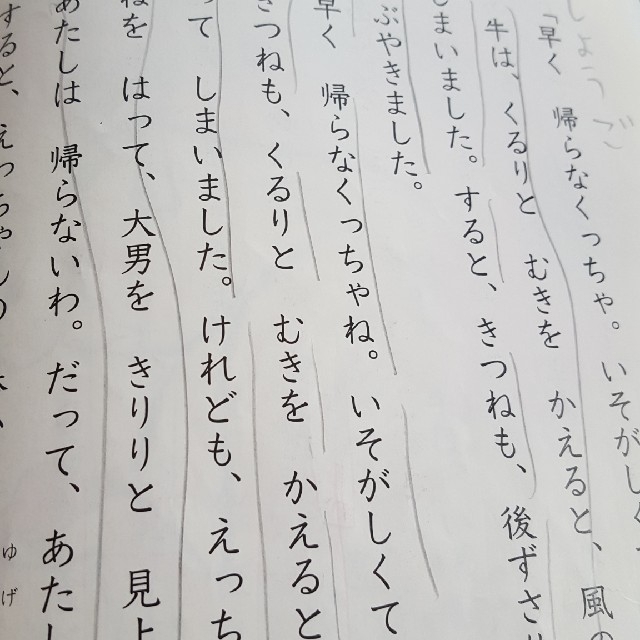 しょうご
「早く 帰らなくっちゃ。いそがしく
牛は、くるりと むきを かえると、風の
しまいました。すると、きつねも、後ずさり
ぶやきました。
早く 帰らなくっちゃね。いそがしくて
きつねも、くるりと むきを かえると
って しまいました。けれども、えっち
ねを はって、大男を きりりと 見上
あたしは 帰らないわ。だって、あたし
すると、えっちゃんの
ゆげ